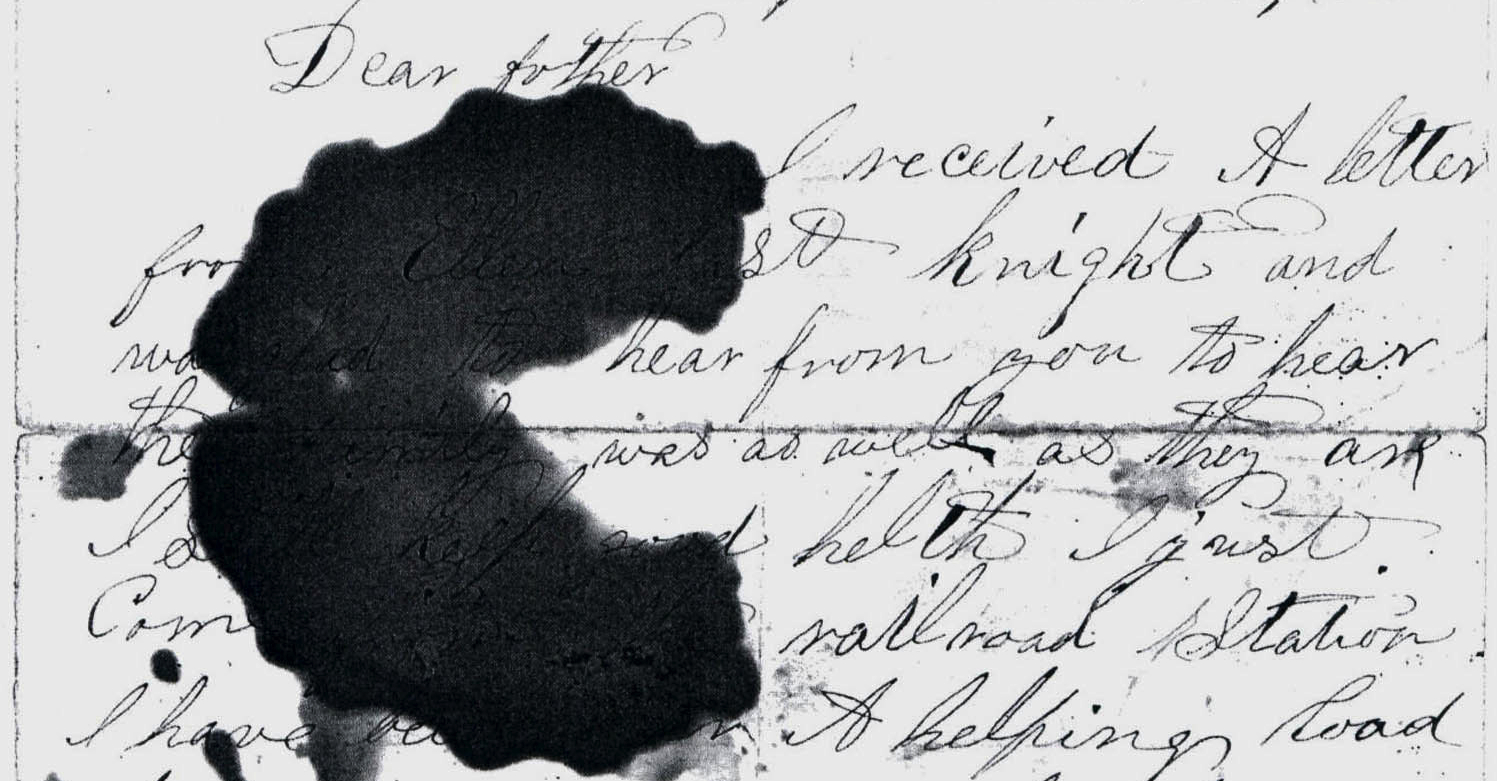 Dear father
I received A letter
from Ellen last knight and
was glad to hear from you to hear
the family was as well as they ar
I still keep good helth I just
Com railroad Station
I have A helping load